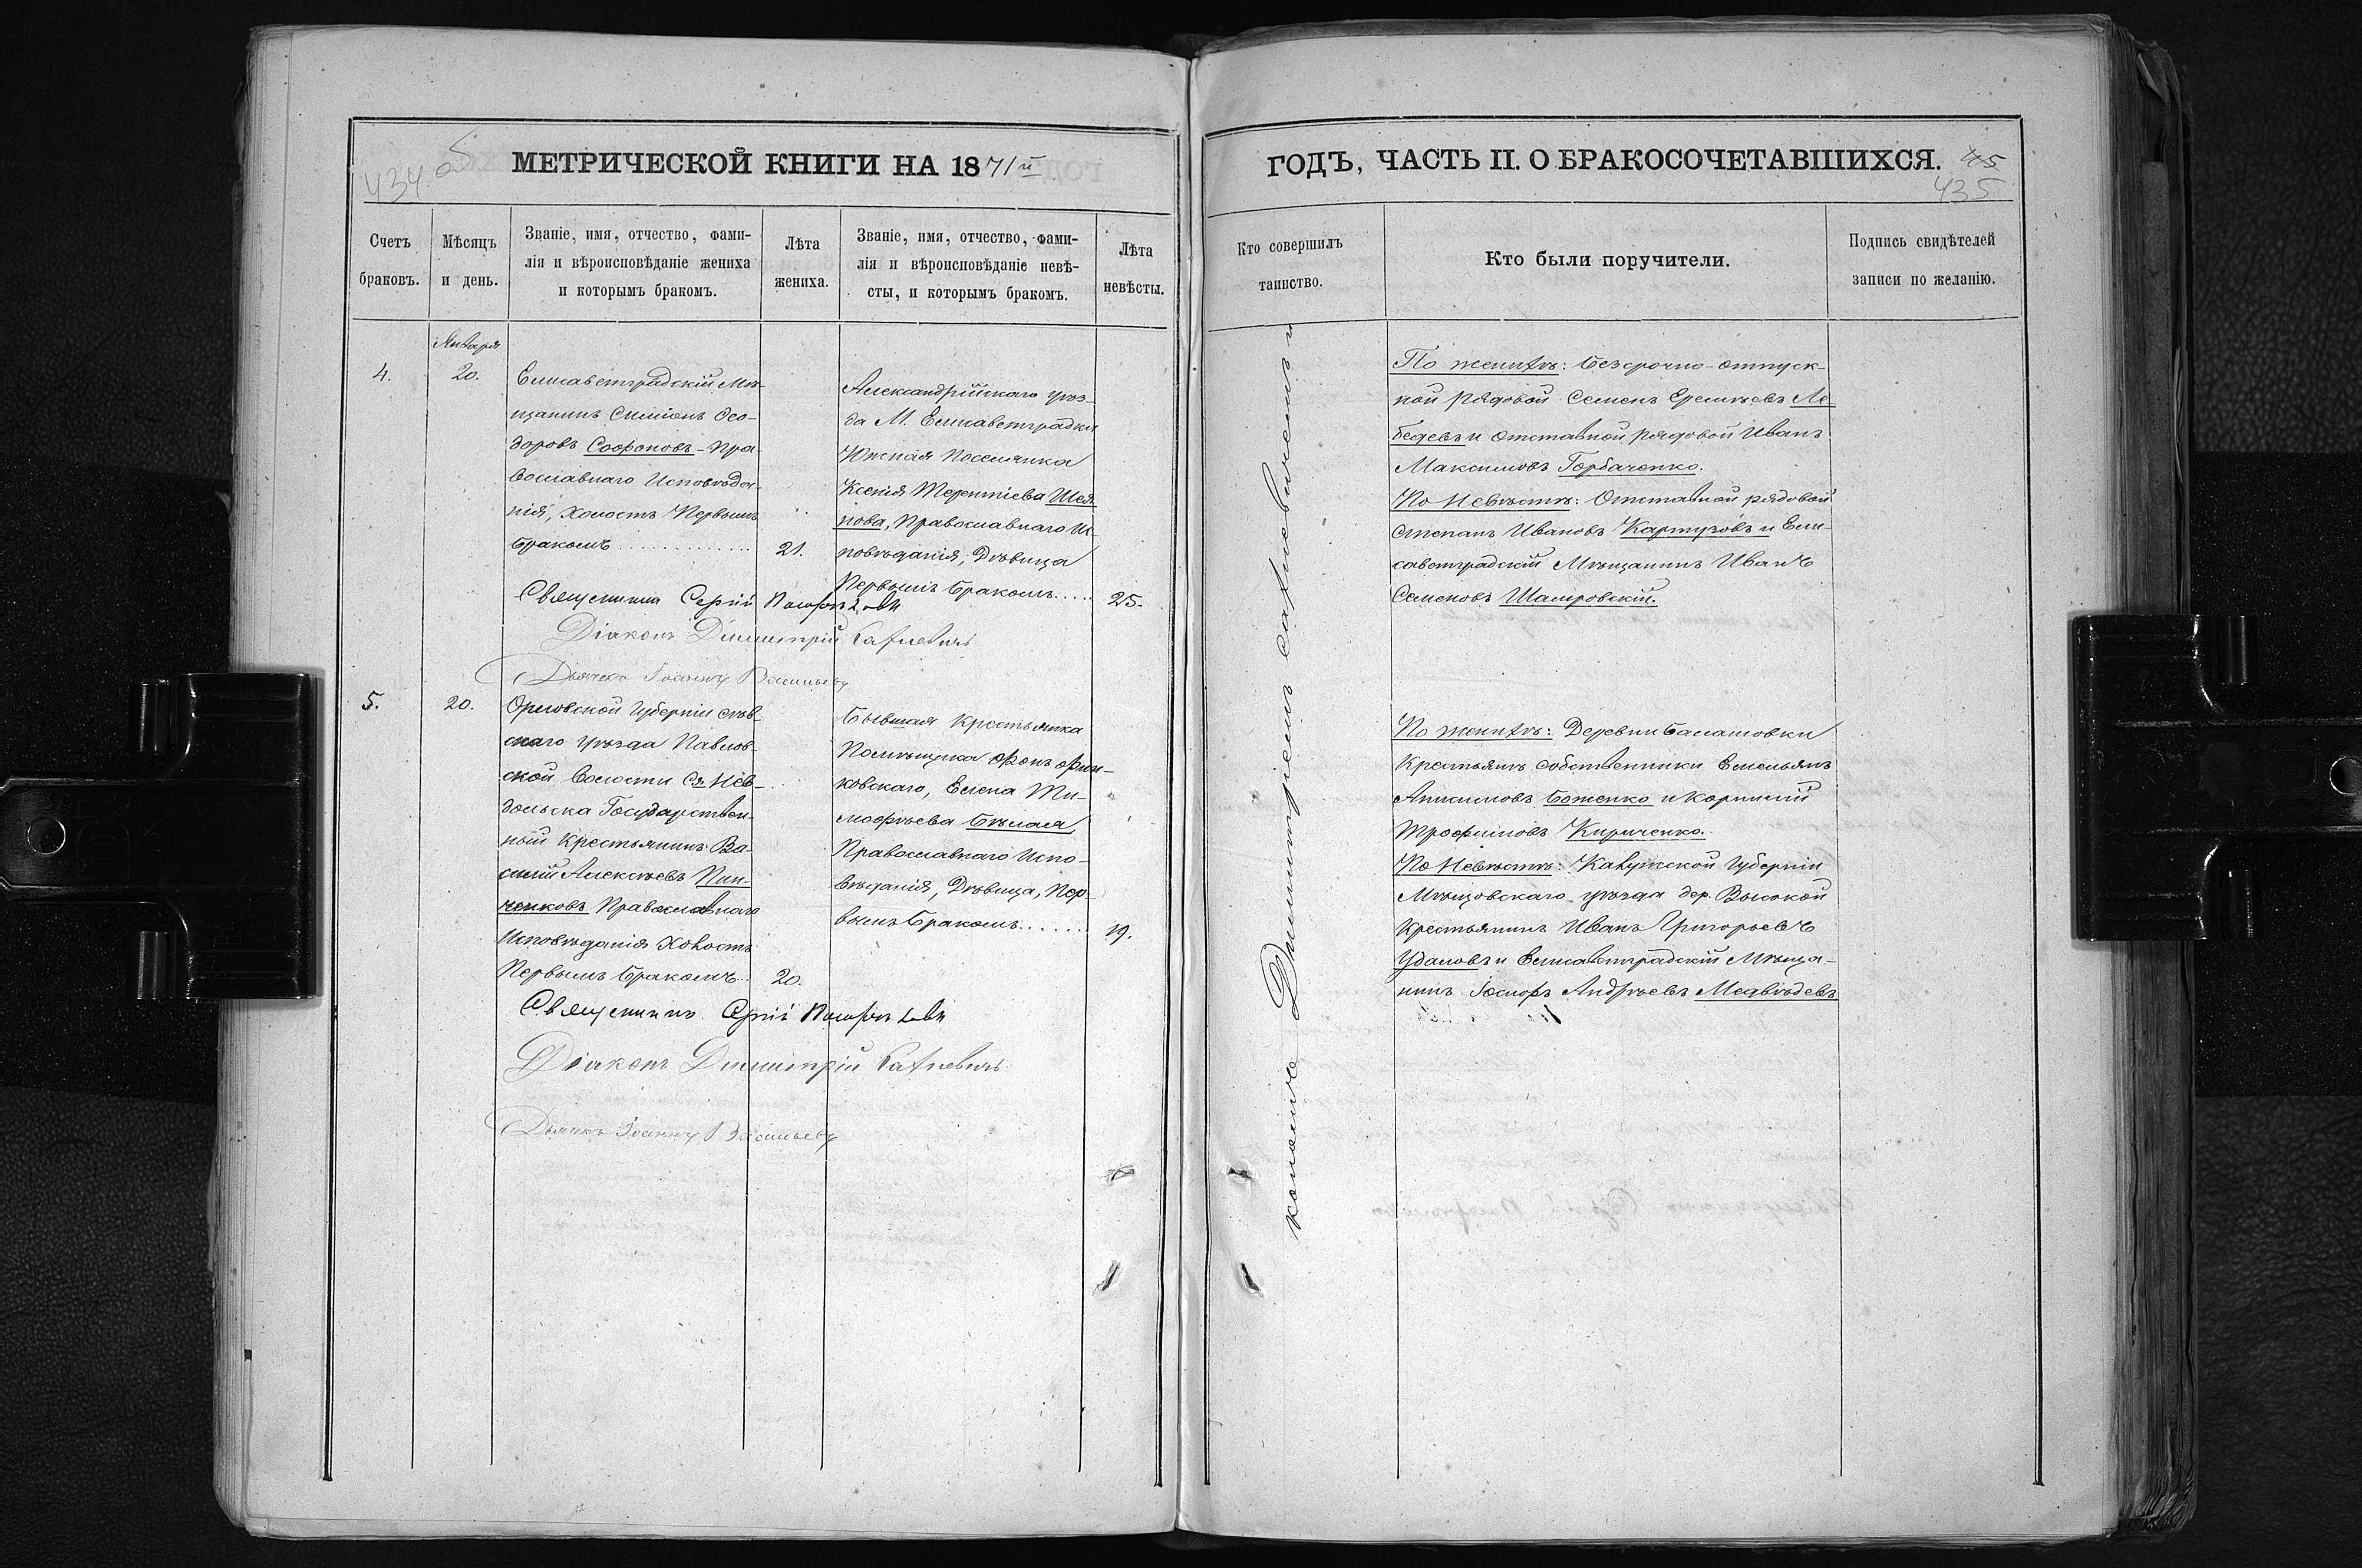 434 об
МЕТРИЧЕСКОЙ КНИГИ НА 1871й
Счетъ браковъ.
Мѣсяцъ и день.
Званіе, имя, отчество, фами-
лія и вѣроисповѣданіе жениха
и которымъ бракомъ.
Лѣта жениха.
Званіе, имя, отчество, фами-
лія и вѣроисповѣданіе невѣ-
сты, и которымъ бракомъ.
Лѣта невѣсты.
Января
4.
20.
Елисаветградскій Мѣ-
щанинъ Симіонъ Ѳео-
доровъ Софоновъ - Пра-
вославнаго Исповѣда-
нія, холостъ Первымъ
бракомъ
21.
Александрійскаго уѣз-
да М. Елисаветградки
Южная Поселянка
Ксенія Терентіева
Православнаго Ис-
повѣданія, Дѣвица
Первымъ бракомъ
25.
Священникъ Сергій
Діаконъ Димитрій
Дьячекъ Іоаннъ Васильевъ
5.
20.
Орловской Губерніи Сѣв-
скаго уѣзда Павлов-
ской Волости Сл Нев-
дольска Государствен-
ный Крестьянинъ Ва-
силій Алексѣевъ Пин-
ченковъ Православнаго
Исповѣданія Холостъ
Первымъ бракомъ
20.
Бывшая Крестьянка
Помѣщика
ковскаго, Елена Ти-
мофѣева Бѣлая,
Православнаго Испо-
вѣданія, Дѣвица, Пер-
вымъ бракомъ
19.
Священникъ Сергій
Діаконъ Димитрій
Дьячекъ Іоаннъ Васильевъ
ГОДЪ, ЧАСТЬ II. О БРАКОСОЧЕТАВШИХСЯ.
45
435
Кто совершилъ таинство.
Кто были поручители.
Подпись свидѣтелей
записи по желанію.
Димитріемъ
По женихѣ: безсрочно-отпуск-
ной рядовой Семенъ Еремѣевъ Ле-
бедевъ и отставной рядовой Иванъ
Максимовъ Горбаченко.
По Невѣстѣ: Отставной рядовой
Степанъ Ивановъ Картузовъ и Ели-
саветградскій Мѣщанинъ Иванъ
Семеновъ
По женихѣ: Деревни Балашовки
Крестьянъ собственники Емельянъ
Анисимовъ Боженко и Корнилій
Трофимовъ Кириченко.
По Невѣстѣ: Калужской Губерніи
Мѣщовскаго уѣзда дер. Высокой
Крестьянинъ Иванъ Григорьевъ
Удаловъ и Елисаветградскій Мѣща-
нинъ Іосифъ Андрѣевъ Медвѣдевъ